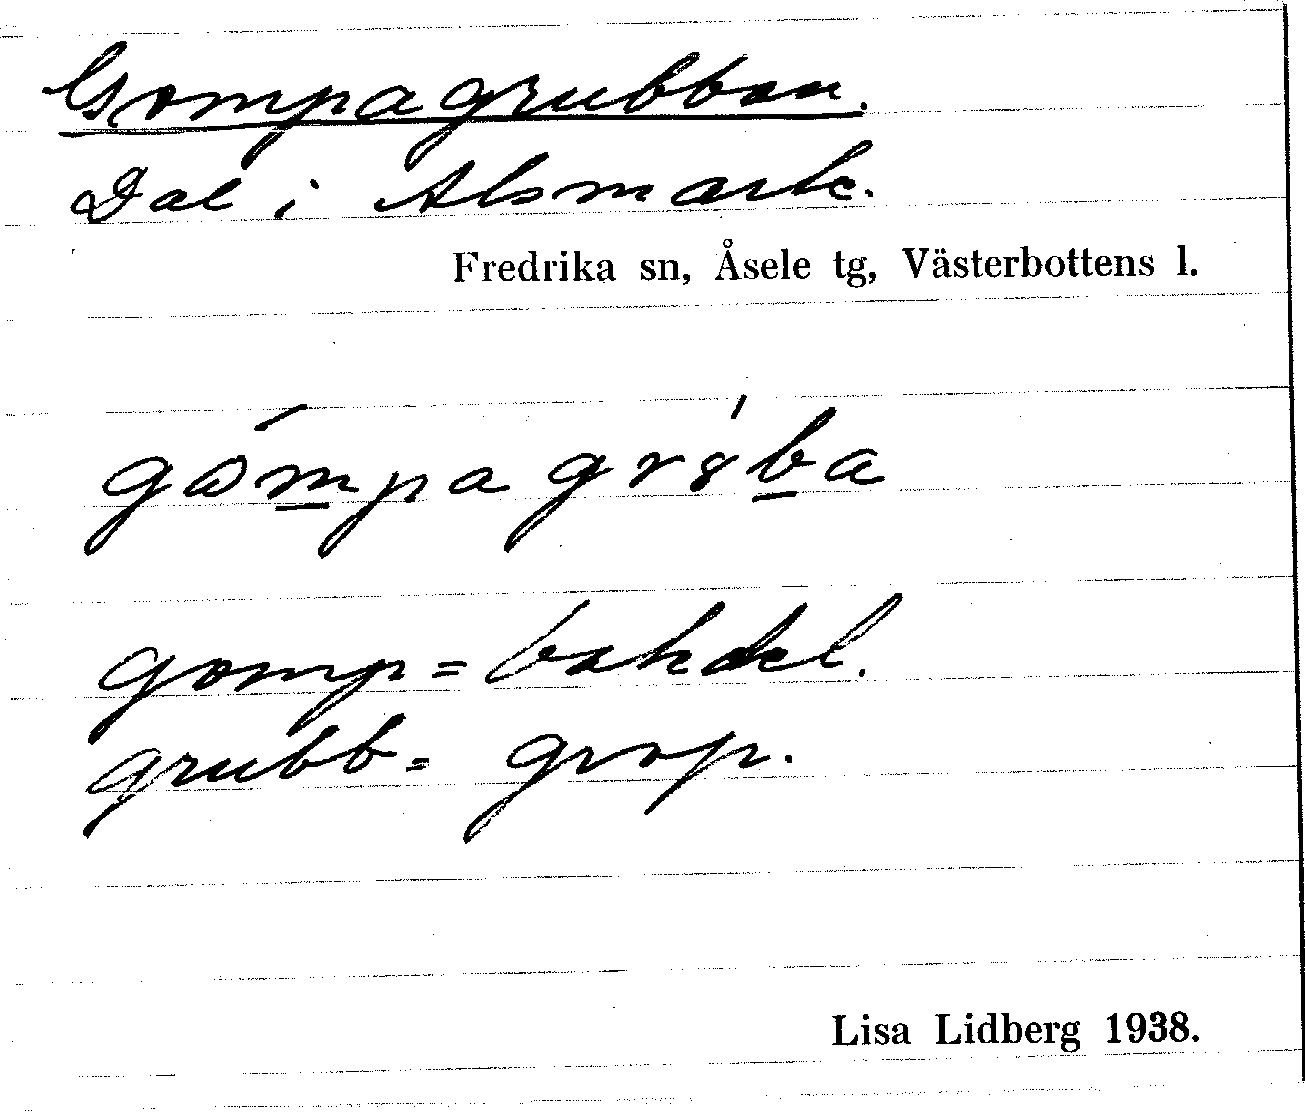 Gompagrubban.
Dal i Alsmark.
Fredrika sn, Åsele tg, Västerbottens l.
gomp = bakdel.
grubb = grop.
Lisa Lidberg 1938.